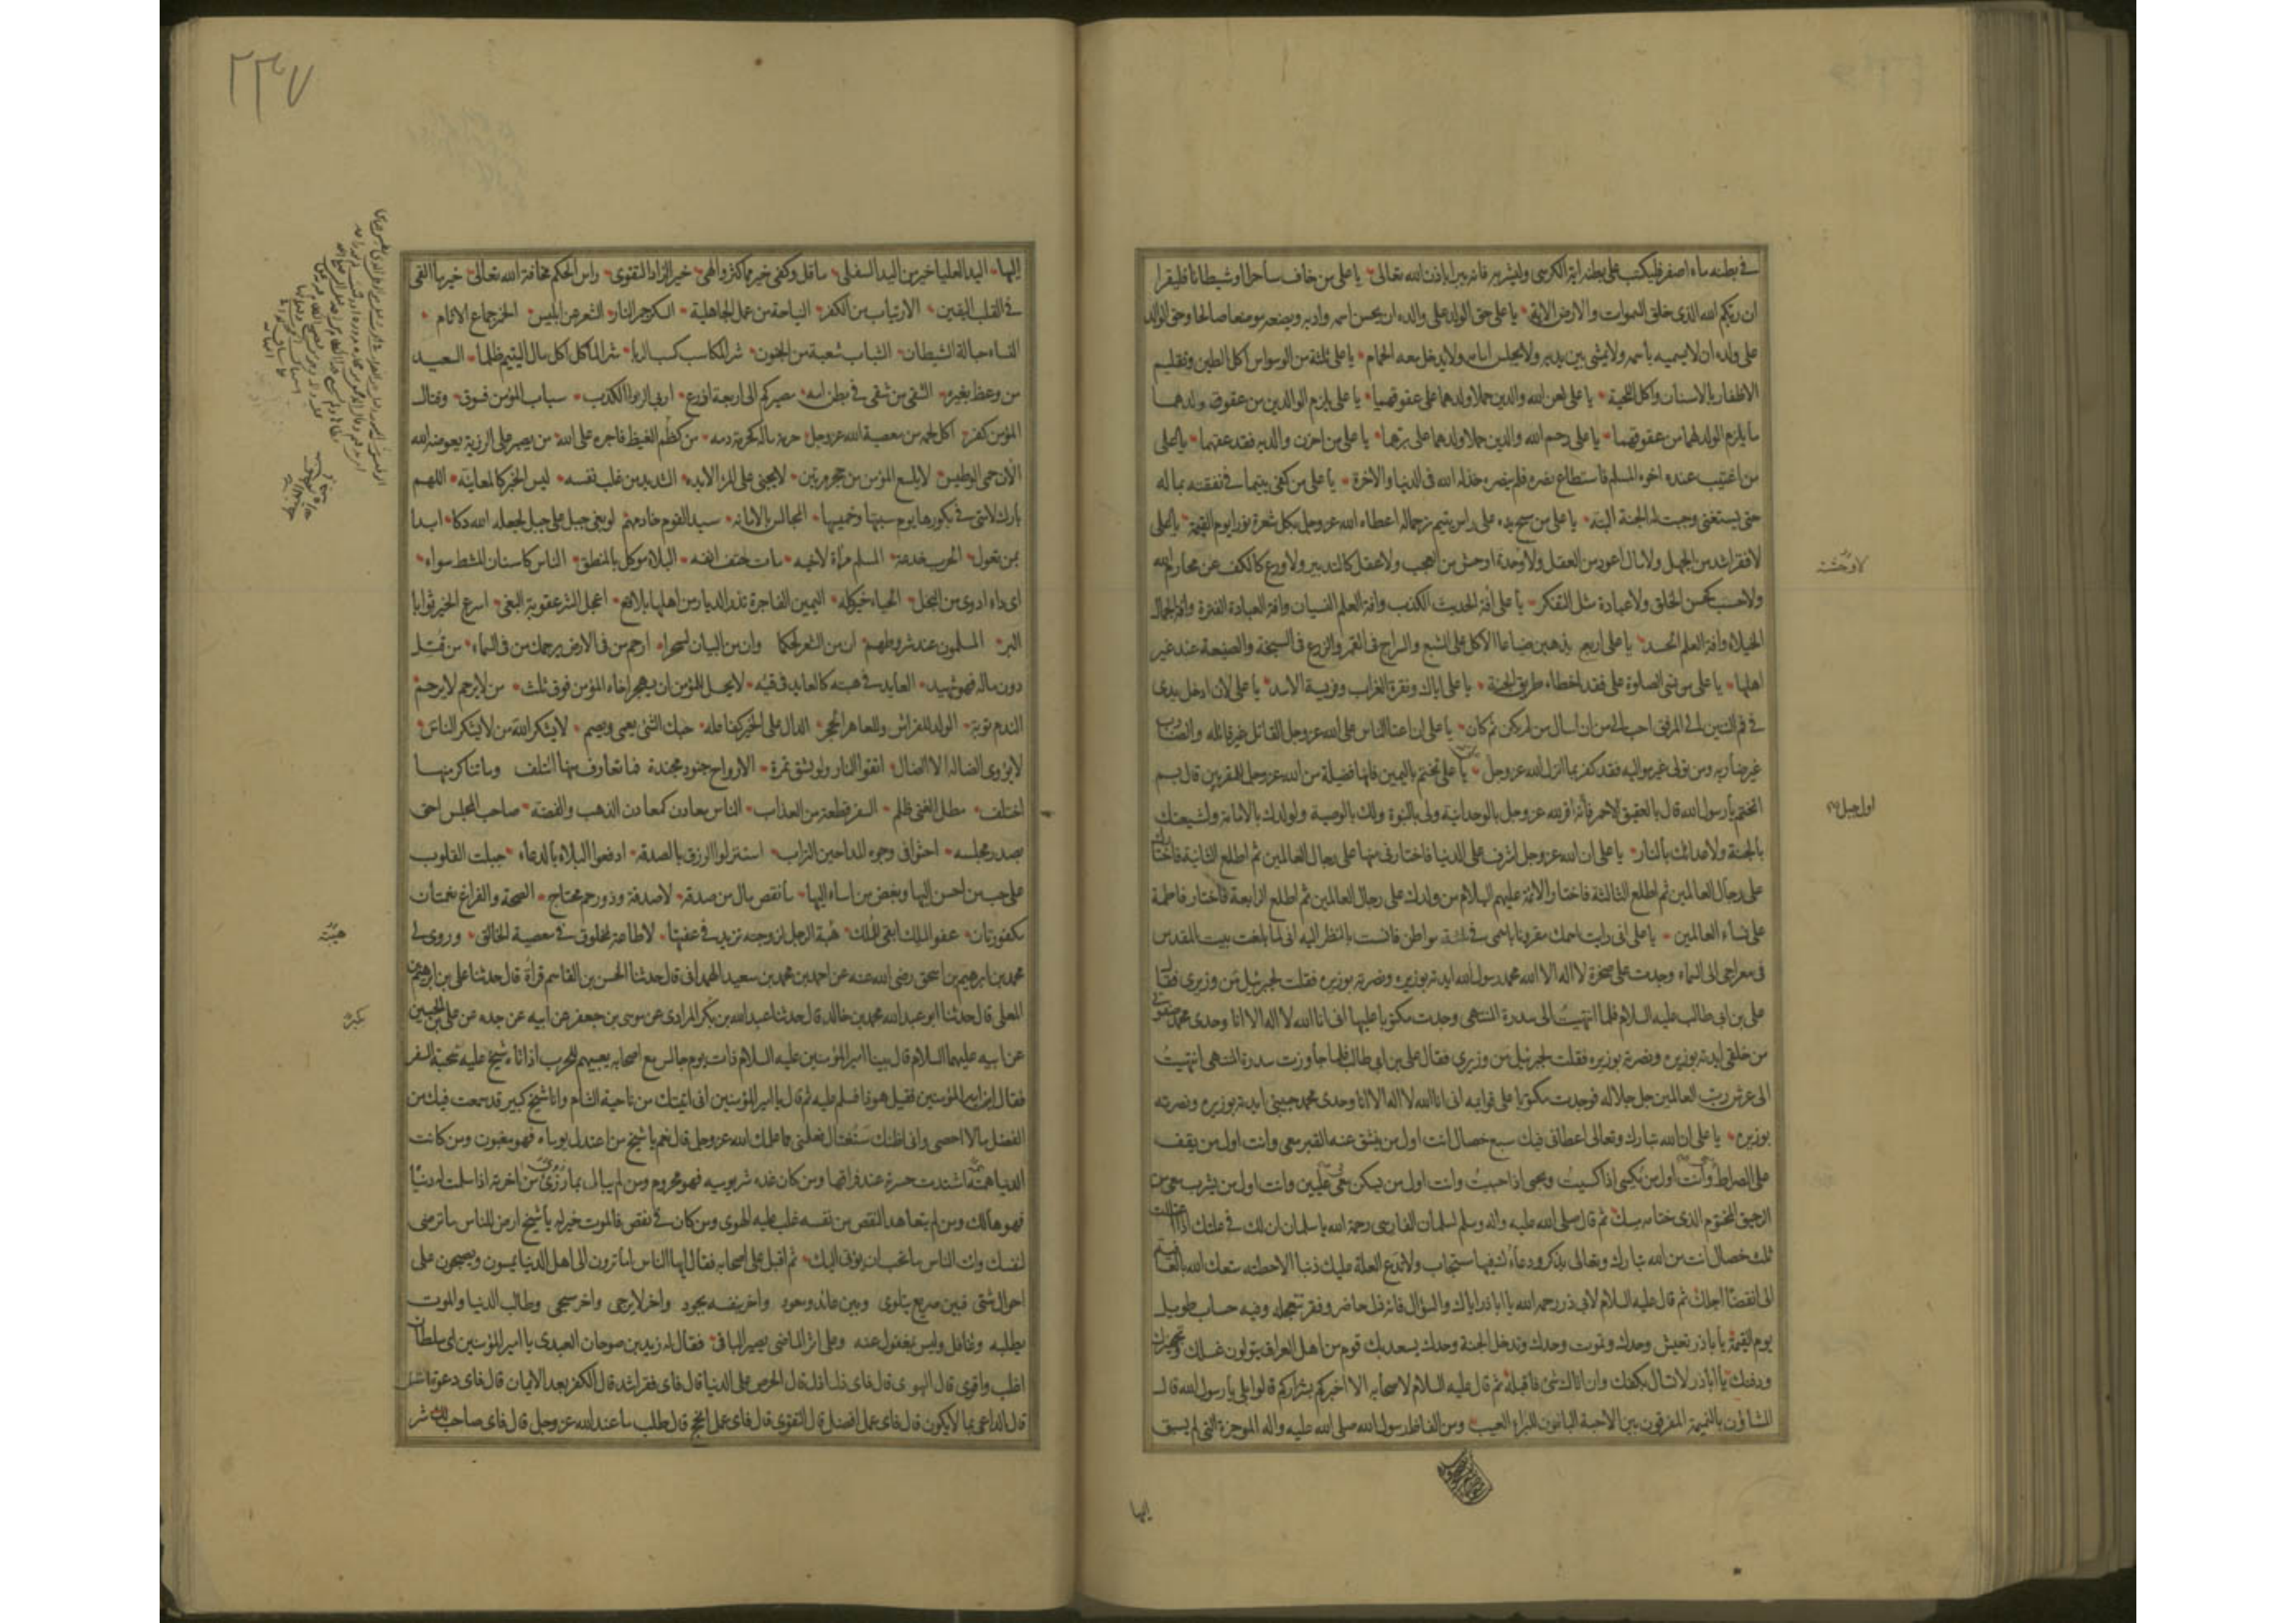 في بطنه ماء اصفر فليكتب على بطنه اية الكرسي وليشربه فانه يبرأ باذن الله تعالى يا على من خاف ساحرا او شيطانا فليقرأ
ان ربكم الله الذى خلق السموات والارض الاية يا على حق الولد على والده ان يحسن اسمه وادبه ويضعه موضعا صالحا وحق الوالد
على ولده ان لا يسميه باسمه ولا يمشى بين يديه ولا يجلس امامه ولا يدخل معه الحمام يا على ثلثة من الوسواس اكل الطين وتقليم
الاظفار بالاسنان واكل اللحية يا على لعن الله والدين حملا ولدهما على عقوقهما يا على يلزم الوالدين من عقوق ولدهما
ما يلزم الولد لهما من عقوقهما يا على رحم الله والدين حملا ولدهما على برهما يا على من احزن والديه فقد عقهما يا على
من اغتيب عنده اخوه المسلم فاستطاع نصره فلم ينصره خذله الله فى الدنيا والاخرة يا على من كفى يتيما فى نفقته بماله
حتى يستغنى وجبت له الجنة البتة يا على من مسح يده على راس يتيم ترحما له اعطاه الله عز وجل بكل شعرة نورا يوم القيمة يا على
لا فقر اشد من الجهل ولا مال اعود من العقل ولا وحدة اوحش من العجب ولا عقل كالتدبير ولا ورع كالكف عن محارم الله
ولا حسب كحسن الخلق ولا عبادة مثل التفكر يا على افة الحديث الكذب وافة العلم النسيان وافة العبادة الفترة وافة الجمال
الخيلاء وافة العلم الحسد يا على اربعة يذهبن ضياعا الاكل على الشبع والسراج فى القمر والزرع فى السبخة والصنيعة عند غير
اهلها يا على من نسى الصلوة على فقد اخطاء طريق الجنة يا على اياك ونقرة الغراب وفريسة الاسد يا على لان ادخل يدى
فى فم التنين الى المرفق احب الى من ان أسال من لم يكن ثم كان يا على ان اعتا الناس على الله عز وجل القاتل غير قاتله والضارب
غير ضاربه ومن تولى غير مواليه فقد كفر بما انزل الله عز وجل يا على تختم باليمين فانها فضيلة من الله عز وجل للمقربين قال بم
اتختم يا رسول الله قال بالعقيق الاحمر فانه اقر لله عز وجل بالوحدانية ولى بالنبوة ولك بالوصية ولولدك بالامامة ولشيعتك
بالجنة ولاعدائك بالنار يا على ان الله عز وجل اشرف على الدنيا فاختارنى منها على رجال العالمين ثم اطلع الثانية فاختارك
على رجال العالمين ثم اطلع الثالثة فاختار الائمة عليهم السلام من ولدك على رجال العالمين ثم اطلع الرابعة فاختار فاطمة
على نساء العالمين يا على انى رايت اسمك مقرونا باسمى فى ثلثة مواطن فانست بالنظر اليه انى لما بلغت بيت المقدس
فى معراجى الى السماء وجدت على صخرة لا اله الا الله محمد رسول الله ايدته بوزيره ونصرته بوزيره فقلت لجبرئيل من وزيرى فقال
على بن ابى طالب عليه السلام فلما انتهيت الى سدرة المنتهى وجدت مكتوبا عليها انى انا الله لا اله الا انا وحدى محمد صفوتى
من خلقى ايدته بوزيره ونصرته بوزيره فقلت لجبرئيل من وزيرى فقال على بن ابى طالب فلما جاوزت سدرة المنتهى انتهيت
الى عرش رب العالمين جل جلاله فوجدت مكتوبا على قوايمه انى انا الله لا اله الا انا وحدى محمد حبيبى ايدته بوزيره ونصرته
بوزيره يا على ان الله تبارك وتعالى اعطانى فيك سبع خصال انت اول من ينشق عنه القبر معى وانت اول من يقف
على الصراط وانت اول من يكسى اذا كسيت ويحيى اذا حييت وانت اول من يسكن معى عليين وانت اول من يشرب معى من
الرحيق المختوم الذى ختامه مسك ثم قال صلى الله عليه واله وسلم لسلمان الفارسى رحمة الله يا سلمان ان لك فى علتك اذا اعتللت
ثلث خصال انت من الله تبارك وتعالى بذكر ودعاءك فيها مستجاب ولا تدع العلة عليك ذنبا الا حطته متعك الله بالعافية
الى انقضاء اجلك ثم قال عليه السلام لابى ذر رحمه الله يا ابا ذر اياك والسؤال فانه ذل حاضر وفقر تتعجله وفيه حساب طويل
يوم القيمة يا با ذر تعيش وحدك وتموت وحدك وتدخل الجنة وحدك يسعد بك قوم من اهل العراق يتولون غسلك وتجهيزك
ودفنك يا ابا ذر لا تسال بكفك وان اتاك شئ فاقبله ثم قال عليه السلام لاصحابه الا اخبركم بشراركم قالوا بلى يا رسول الله قال
المشاؤن بالنميمة المفرقون بين الاحبة الباغون للبراء العيب ومن الفاظ رسول الله صلى الله عليه واله الموجزة التى لم يسبق
لا وحشة
اليها
٢٣٧
اليها اليد العليا خير من اليد السفلى ما قل وكفى خير مما كثر والهى خير الزاد التقوى راس الحكم مخافة الله تعالى خير ما القى
فى القلب اليقين الارتياب من الكفر النياحة من عمل الجاهلية السكر جمر النار الشعر من ابليس الخمر جماع الاثام
النساء حبالة الشيطان الشباب شعبة من الجنون شر المكاسب كسب الربا شر الماكل اكل مال اليتيم ظلما السعيد
من وعظ بغيره الشقى من شقى فى بطن امه مصيركم الى اربعة اذرع اربى الربوا الكذب سباب المؤمن فسوق وقتال
المؤمن كفر اكل لحمه من معصية الله عز وجل حرمة ماله كحرمة دمه من كظم الغيظ فاجره على الله من يصبر على الرزية يعوضه الله
الآن حمى الوطيس لا يلسع المؤمن من جحر مرتين لا يجنى على المرء الا يده الشديد من غلب نفسه ليس الخبر كالمعاينة اللهم
بارك لامتى فى بكورها يوم سبتها وخميسها المجالس بالامانة سيد القوم خادمهم لو بغى جبل على جبل لجعله الله دكا ابدا
بمن تعول الحرب خدعة المسلم مرآة لاخيه مات حتف انفه البلاء موكل بالمنطق الناس كاسنان المشط سواء
اى داء ادوى من البخل الحياء خير كله اليمين الفاجرة تذر الديار من اهلها بلاقع اعجل الشر عقوبة البغى اسرع الخير ثوابا
البر المسلمون عند شروطهم ان من الشعر لحكما وان من البيان لسحرا ارحم من فى الارض يرحمك من فى السماء من قتل
دون ماله فهو شهيد العايد فى هبته كالعايد فى قيئه لا يحل للمؤمن ان يهجر اخاه المؤمن فوق ثلث من لا يرحم لا يرحم
الندم توبة الولد للفراش وللعاهر الحجر الدال على الخير كفاعله حبك الشئ يعمى ويصم لا يشكر الله من لا يشكر الناس
لا يؤوى الضالة الا الضال اتقوا النار ولو بشق تمرة الارواح جنود مجندة فما تعارف منها ائتلف وما تناكر منها
اختلف مطل الغنى ظلم السفر قطعة من العذاب الناس معادن كمعادن الذهب والفضة صاحب المجلس احق
بصدر مجلسه احثوا فى وجوه المداحين التراب استنزلوا الرزق بالصدقة ادفعوا البلاء بالدعاء جبلت القلوب
على حب من احسن اليها وبغض من اساء اليها ما نقص مال من صدقة لا صدقة وذو رحم محتاج الصحة والفراغ نعمتان
مكفورتان عفو الملك ابقى للملك هبة الرجل لزوجته تزيد فى عفتها لا طاعة لمخلوق فى معصية الخالق وروى لى
محمد بن ابرهيم بن اسحق رضى الله عنه عن احمد بن محمد بن سعيد الهمدانى قال حدثنا الحسن بن القاسم قرأة قال حدثنا على بن ابرهيم بن
المعلى قال حدثنا ابو عبد الله محمد بن خالد قال حدثنا عبد الله بن بكر المرادى عن موسى بن جعفر عن ابيه عن جده عن على بن الحسين
عن ابيه عليهما السلام قال بينا امير المؤمنين عليه السلام ذات يوم جالس مع اصحابه يعبيهم للحرب اذ اتاه شيخ عليه شحبة السفر
فقال اين امير المؤمنين فقيل هو ذا فسلم عليه ثم قال يا امير المؤمنين انى اتيتك من ناحية الشام وانا شيخ كبير قد سمعت فيك من
الفضل ما لا احصى وانى اظنك ستغتال فعلمنى مما علمك الله عز وجل قال نعم يا شيخ من اعتدل يوماه فهو مغبون ومن كانت
الدنيا همته اشتدت حسرته عند فراقها ومن كان غده شر يوميه فهو محروم ومن لم يبال بما رزئ من اخرته اذا سلمت له دنياه
فهو هالك ومن لم يتعاهد النقص من نفسه غلب عليه الهوى ومن كان فى نقص فالموت خير له يا شيخ ارض للناس ما ترضى
لنفسك وات الناس ما تحب ان يؤتى اليك ثم اقبل على اصحابه فقال ايها الناس اما ترون الى اهل الدنيا يمسون ويصبحون على
احوال شتى فبين صريع يتلوى وبين عائد ومعود واخر بنفسه يجود واخر لا يرجى واخر مسجى وطالب الدنيا والموت
يطلبه وغافل وليس بمغفول عنه وعلى اثر الماضى يصير الباقى فقال له زيد بن صوحان العبدى يا امير المؤمنين اى سلطان
اغلب واقوى قال الهوى قال فاى ذل اذل قال الحرص على الدنيا قال فاى فقر اشد قال الكفر بعد الايمان قال فاى دعوة اضل
قال الداعى بما لا يكون قال فاى عمل افضل قال التقوى قال فاى عمل انجح قال طلب ما عند الله عز وجل قال فاى صاحب لك شر
هبة
بكر